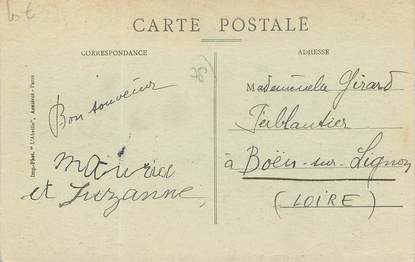 10€
CARTE POSTALE
CORRESPONDANCE
ADRESSE
Bon souvenir
Maurice
et Suzanne,
Mademoiselle Girard
Ferblantier
à Boën-sur-Lignon
(LOIRE)
Imp.-Phot. "L'Abeille", Asnières - Paris